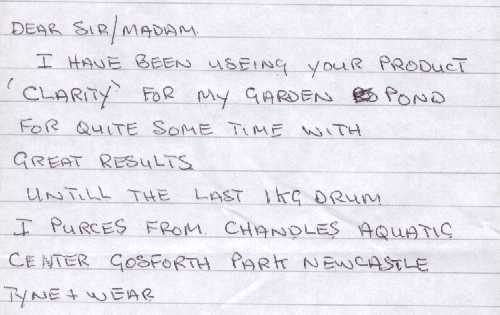 DEAR SIR/MADAM.
I HAVE BEEN USEING YOUR PRODUCT
'CLARITY' FOR MY GARDEN POND
FOR QUITE SOME TIME WITH
GREAT RESULTS
UNTILL THE LAST 1KG DRUM
I PURCES FROM CHANDLES AQUATIC
CENTER GOSFORTH PARK NEWCASTLE
TYNE + WEAR